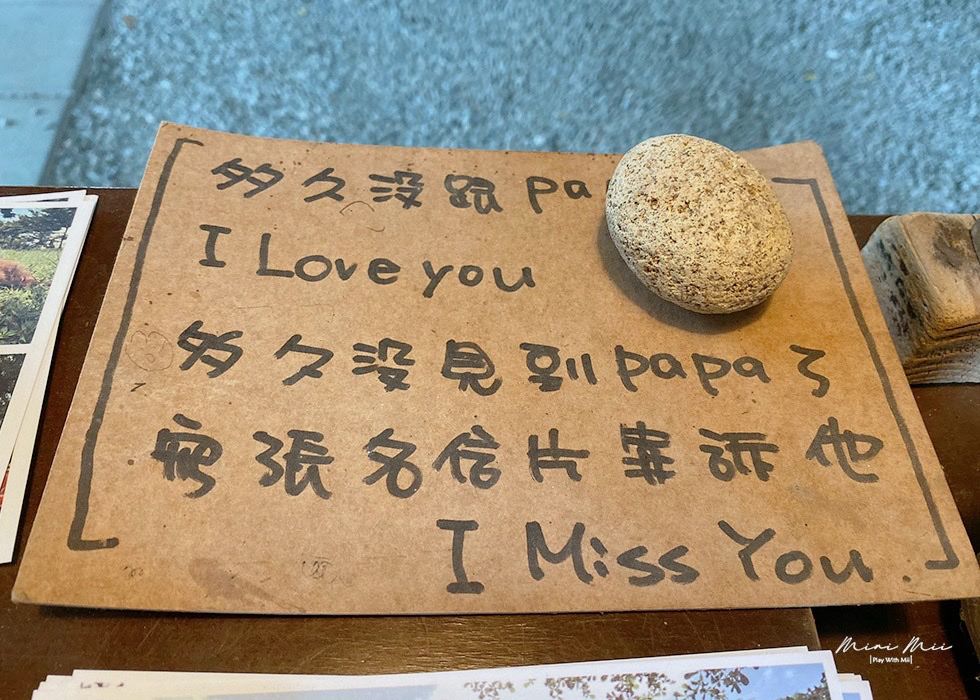 多久沒跟 pa
I Love you
多久沒見到papa了
張名信片訴他
I Miss You.
Mini Mii
|Play With Mii|